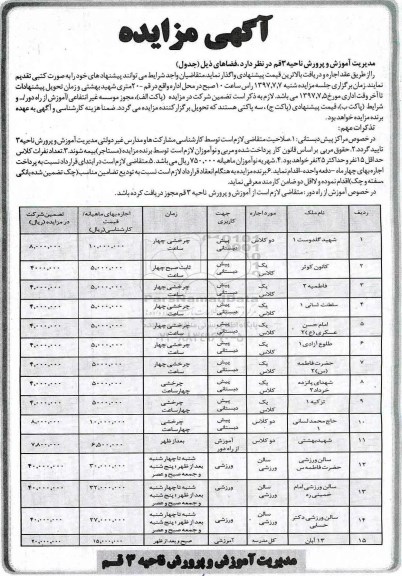 آگهی مزایده
مدیریت آموزش و پرورش ناحیه ۳ قم در نظر دارد، فضاهای ذیل (جدول)
را از طریق عقد اجاره و دریافت بالاترین قیمت پیشنهادی واگذار نماید متقاضیان واجد شرایط می توانند پیشنهادهای خود را به صورت کتبی تقدیم
نمایند. زمان برگزاری جلسه مزایده شنبه ۱۳۹۷,۷,۷ راس ساعت ۱۰ صبح در محل اداره واقع در قم - ۲۰ متری شهید بهشتی و زمان تحویل پیشنهادات
تا آخر وقت اداری مورخ ۱۳۹۷,۷,۵ می باشد. لازم به ذکر است تضمین شرکت در مزایده (پاکت الف)، مجوز موسسه غیر انتفاعی (آموزش از راه دور) و
شرایط (پاکت ب)، قیمت پیشنهادی (پاکت ج)، سه پاکتی هستند که تحویل برگزار کننده مزایده می گردد. ضمنا هزینه کارشناسی و آگهی به عهده
برنده مزایده خواهد بود.
تذکرات مهم:
در خصوص مراکز پیش دبستانی: ۱. صلاحیت متقاضی لازم است توسط کارشناسی مشارکت ها و مدارس غیر دولتی مدیریت آموزش و پرورش ناحیه ۳
تایید گردد. ۲. حقوق مربی بر اساس قانون کار پرداخت شده و مربی و نوآموزان لازم است توسط برنده مزایده (مستاجر) بیمه شوند. ۳. تعداد نفرات کلاس
حداقل ۱۵ نفر و حداکثر ۲۵ نفر خواهد بود. ۴. شهریه نوآموزان ماهیانه ۷۵۰,۰۰۰ ریال می باشد. ۵. متقاضی لازم است در ابتدای قرارداد نسبت به پرداخت
اجاره بهای چهار ماه - دفعه واحده - اقدام نماید. ۶. برنده مزایده به هنگام انعقاد قرارداد لازم است نسبت به تودیع تضامین مناسب (چک تضمین شده بانکی
سفته و چک) اقدام نموده و لااقل دو ضامن کارمند معرفی نماید.
در خصوص آموزش از راه دور: متقاضی لازم است از آموزش و پرورش ناحیه ۳ قم مجوز دریافت کرده باشد.
ردیف نام ملک مورد اجاره جهت کاربری زمان اجاره بهای ماهیانه / قیمت کارشناسی (ریال) تضمین شرکت در مزایده (ریال)
۱ شهید گلدوست ۱ دو کلاس پیش دبستانی چرخشی چهار ساعت ۱۰,۰۰۰,۰۰۰ ۸,۰۰۰,۰۰۰
۲ کانون کوثر یک کلاس پیش دبستانی ثابت صبح چهار ساعت ۵,۰۰۰,۰۰۰ ۴,۰۰۰,۰۰۰
۳ فاطمیه ۲ یک کلاس پیش دبستانی چرخشی چهار ساعت ۵,۰۰۰,۰۰۰ ۴,۰۰۰,۰۰۰
۴ سلطنت لسانی ۱ یک کلاس پیش دبستانی چرخشی چهار ساعت ۵,۰۰۰,۰۰۰ ۴,۰۰۰,۰۰۰
۵ امام حسن عسکری (ع) ۲ یک کلاس پیش دبستانی چرخشی چهار ساعت ۵,۰۰۰,۰۰۰ ۴,۰۰۰,۰۰۰
۶ طلوع آزادی ۱ یک کلاس پیش دبستانی چرخشی چهار ساعت ۵,۰۰۰,۰۰۰ ۴,۰۰۰,۰۰۰
۷ حضرت فاطمه (س) ۲ یک کلاس پیش دبستانی چرخشی چهار ساعت ۵,۰۰۰,۰۰۰ ۴,۰۰۰,۰۰۰
۸ شهدای پانزده خرداد ۲ یک کلاس پیش دبستانی چرخشی چهار ساعت ۵,۰۰۰,۰۰۰ ۴,۰۰۰,۰۰۰
۹ تزکیه ۱ یک کلاس پیش دبستانی چرخشی چهار ساعت ۵,۰۰۰,۰۰۰ ۴,۰۰۰,۰۰۰
۱۰ حاج محمد لسانی ۱ دو کلاس پیش دبستانی چرخشی چهار ساعت ۱۰,۰۰۰,۰۰۰ ۸,۰۰۰,۰۰۰
۱۱ شهید بهشتی دو کلاس آموزش از راه دور بعد از ظهر ۶,۵۰۰,۰۰۰ ۷,۸۰۰,۰۰۰
۱۲ سالن ورزشی حضرت فاطمه س سالن ورزشی ورزشی شنبه تا چهارشنبه بعد از ظهر؛ پنج شنبه و جمعه صبح و عصر ۳۰,۰۰۰,۰۰۰ ۴۰,۰۰۰,۰۰۰
۱۳ سالن ورزشی امام خمینی ره سالن ورزشی ورزشی شنبه تا چهارشنبه بعد از ظهر؛ پنج شنبه و جمعه صبح و عصر ۳۲,۰۰۰,۰۰۰ ۴۰,۰۰۰,۰۰۰
۱۴ سالن ورزشی دکتر حسابی سالن ورزشی ورزشی شنبه تا چهارشنبه بعد از ظهر؛ پنج شنبه و جمعه صبح و عصر ۲۷,۰۰۰,۰۰۰ ۴۰,۰۰۰,۰۰۰
۱۵ ۱۳ آبان کل مدرسه آموزشی صبح و بعد از ظهر ۱۵,۰۰۰,۰۰۰ ۲۰,۰۰۰,۰۰۰
مدیریت آموزش و پرورش ناحیه ۳ قم